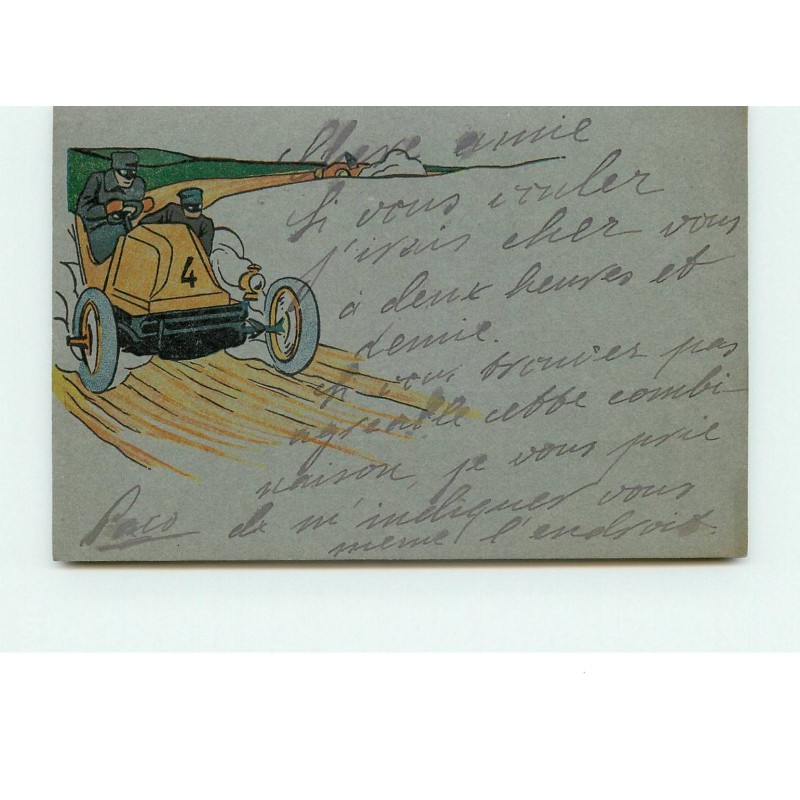 Chere amie
Si vous vouler
j'irais cher vous
à deux heures et
demie.
si vous trouver pas
agreable cette combi-
naison, je vous prie
de m'indiquer vous
meme l'endroit.
Paco
4